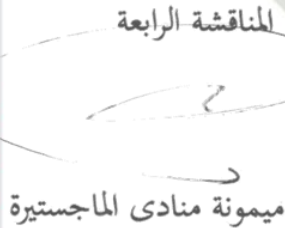 المناقشة الرابعة
ميمونة منادى الماجستيرة